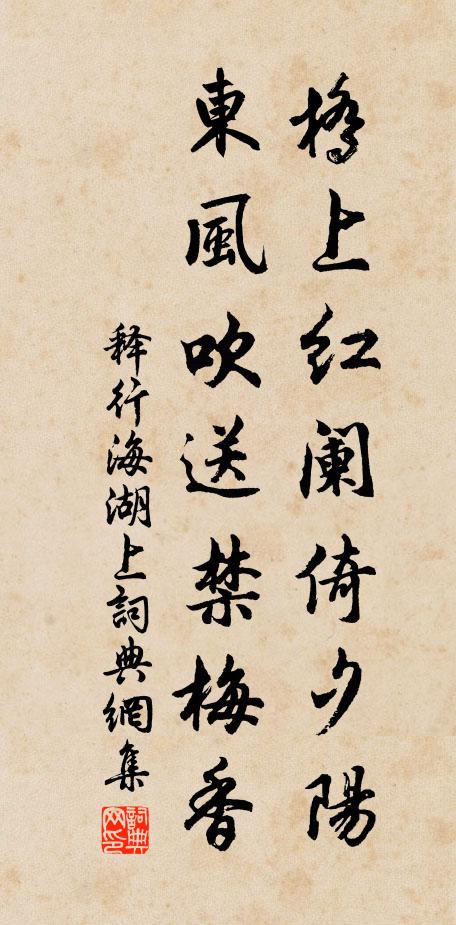 橋上红阑倚夕陽
東風吹送禁梅香
释行海湖上詞典網集
詞典网印